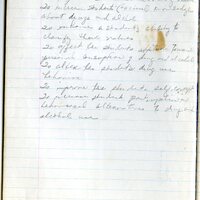 To increase student knowledge
about drugs and alcohol
To enhance a students ability to
change their values
To affect the students toward
personal consumption of drugs and alcohol
To alter the students drug use
behavior
To improve the students self concept
To increase student participation
behavioral alternatives to drug and
alcohol use